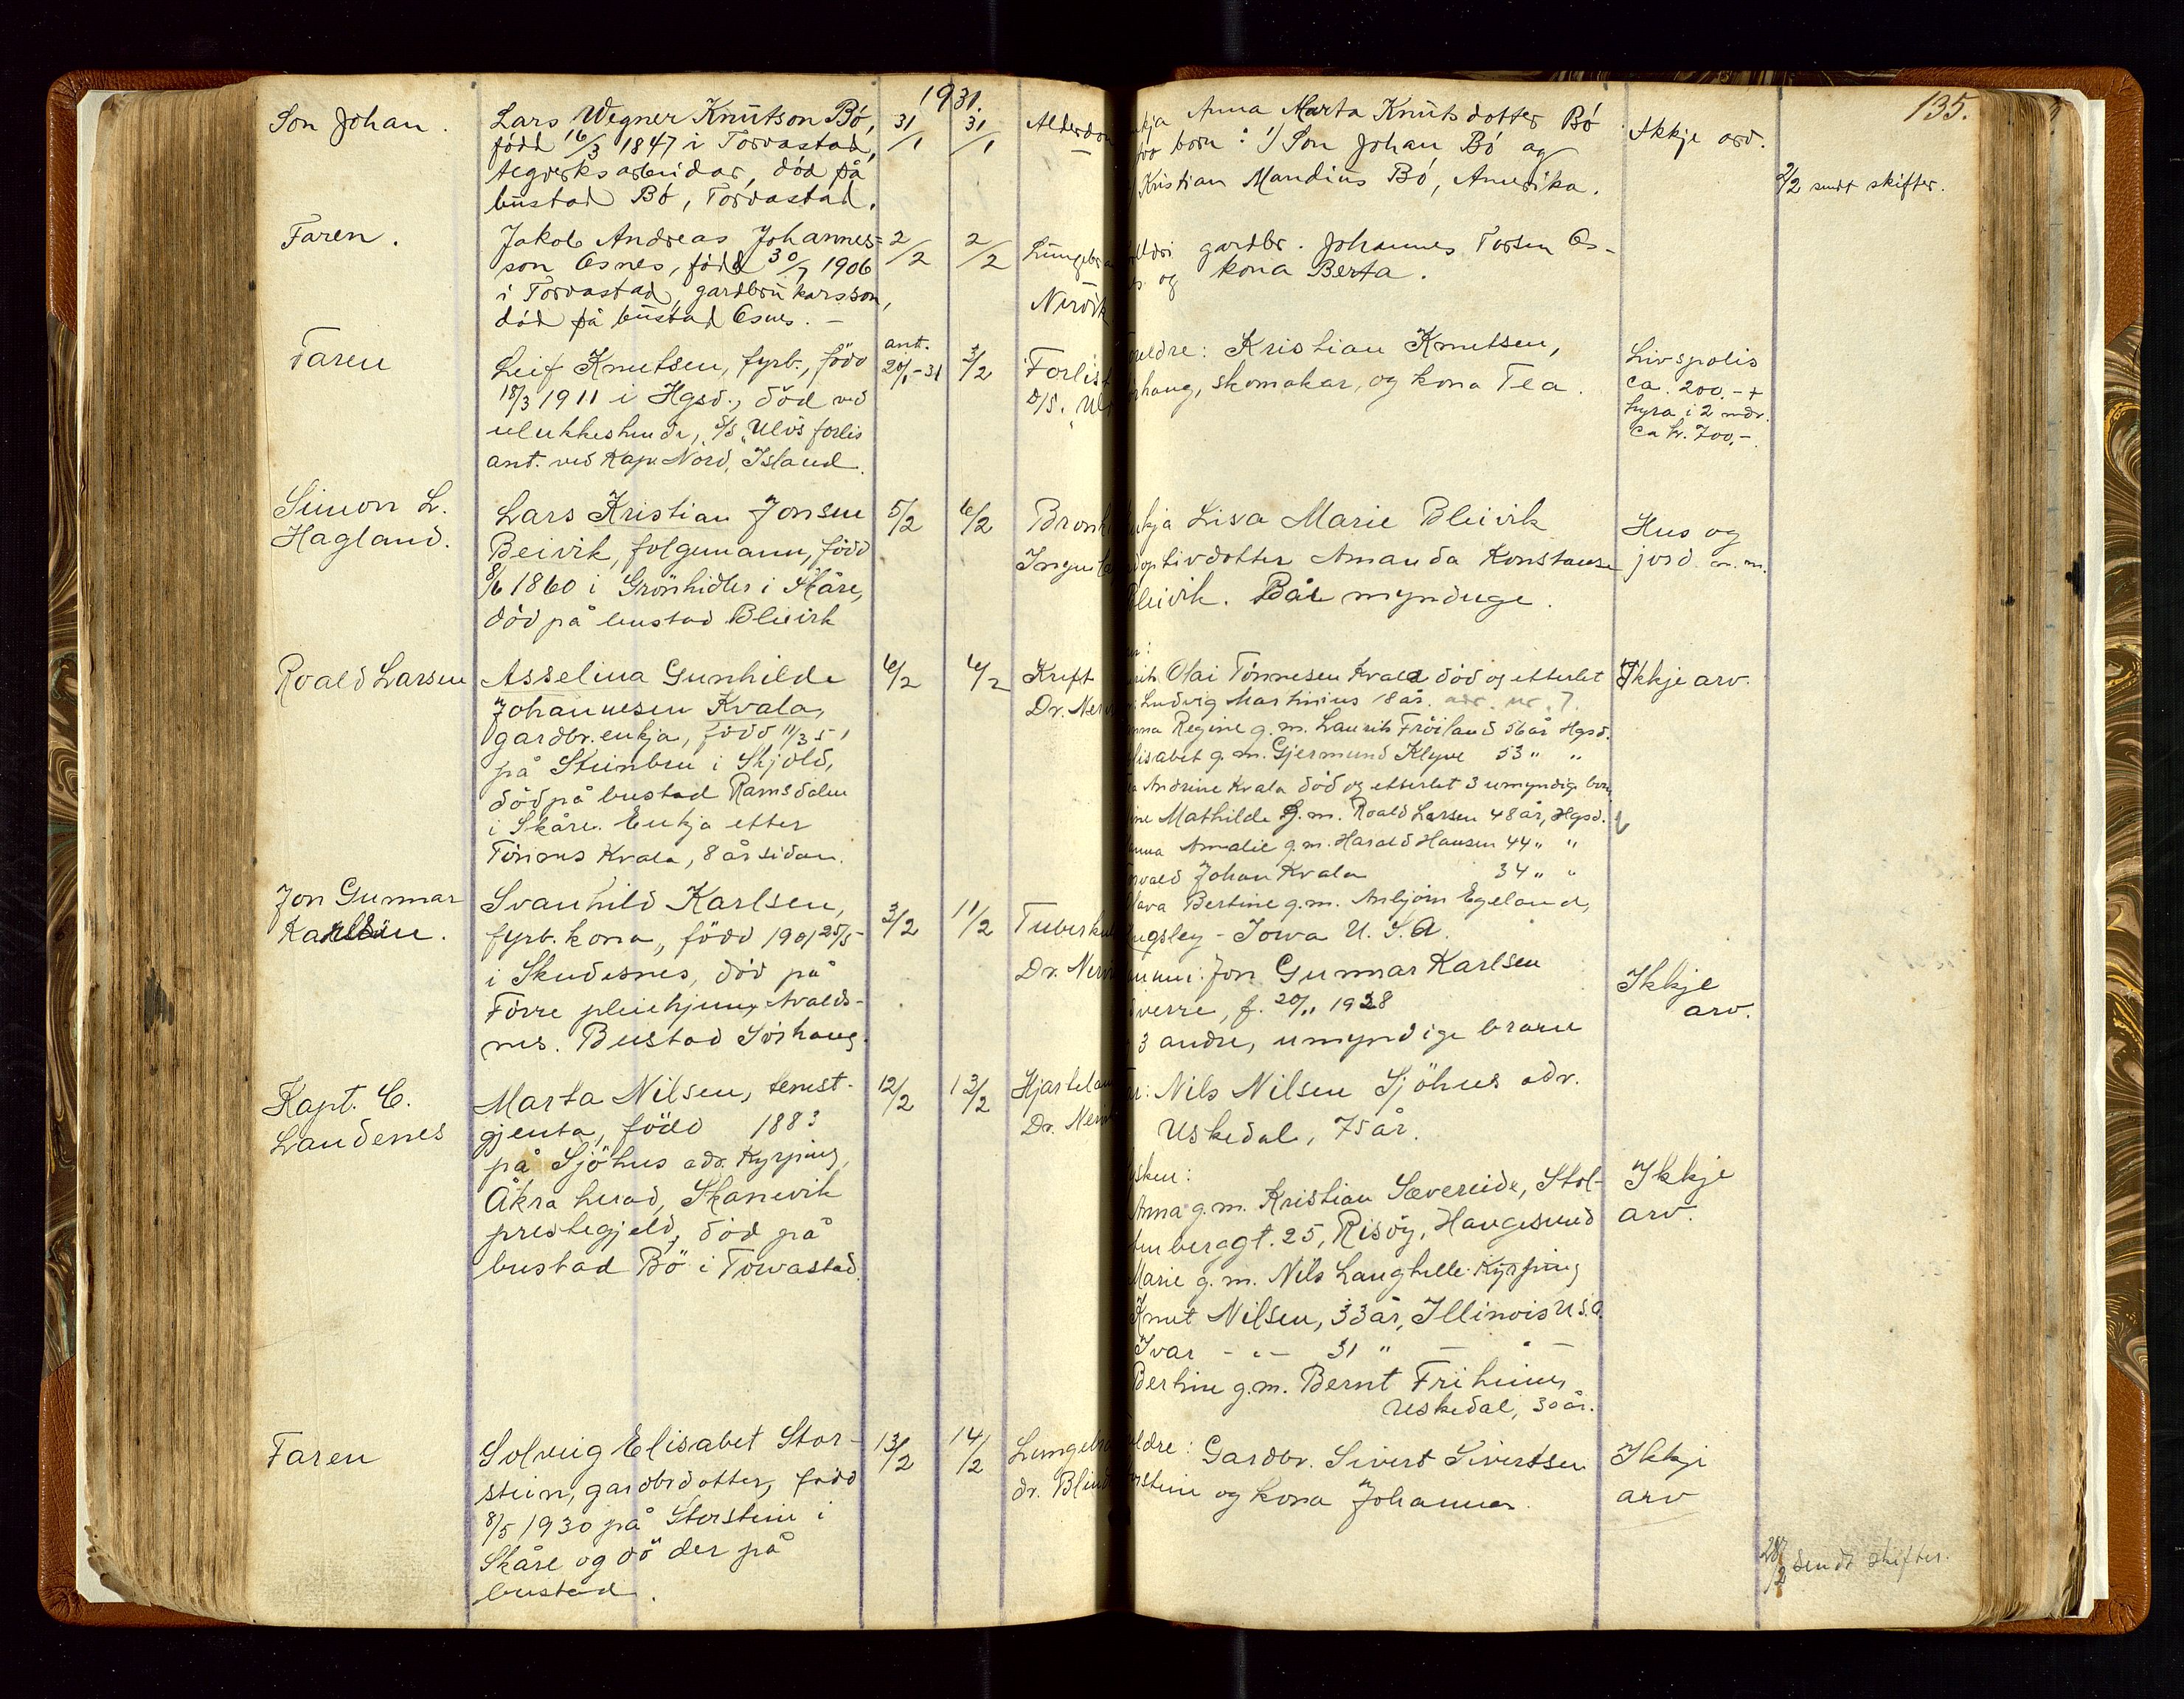 1931.
135.
Son Johan.
Lars Wegner Knutson Bö,
född 16/3 1847 i Torvastad,
tegverksarbeidar, död på
bustad Bö, Torvastad.
31/1
31/1
Alderdom
Anna Marta Knutsdotter Bö
born: 1) Son Johan Bö og
Kristian Mandius Bö, Amerika.
Ikkje arv.
2/2 sendt skifter.
Faren.
Jakob Andreas Johannes=
son Osnes, född 30/7 1906
i Torvastad, gardbrukarsson,
död på bustad Osnes. -
2/2
2/2
gardbr. Johannes Torsen Os-
og kona Berta.
Faren
Leif Knutsen, fyrb., född
18/3 1911 i Hgsd., död ved
ulukkeshende, D/S "Ulvs forlis
ant. ved Kap Nord, Island.
ant.
20/1-31
3/2
Forlist
D/S. "Ulv
Kristian Knutsen,
skomakar, og kona Tea.
Livspolis
ca. 200.-+
hyra i 2 mdr.
ca kr. 700,-
Simon L.
Hagland.
Lars Kristian Jonsen
Beivik, folgemann, född
8/6 1860 i Grönhidler i Skåre,
död på bustad Bleivik
5/2
6/2
Lisa Marie Bleivik
Amanda Konstanse
Bleivik. Båe mynduge.
Hus og
jord m.m.
Roald Larsen
Asselina Gunhilde
Johannesen Kvala,
gardbr. enkja, född 11/3 51
på Steinbru i Skjold,
död på bustad Ramsdalen
i Skåre. Enkja etter
Tönnes Kvala, 8 år sidan.
6/2
6/2
Kreft
Dr. Ner
Olai Tönnesen Kvala död og etterlet
Ludvig Martinius 18 år. adr. nr. 7.
Regine g.m. Laurits Fröiland 56 år Hgsd.
Elisabet g.m. Gjermund Klyve 53 " "
Andrine Kvala död og etterlet 3 umyndige born
Mathilde g.m. Roald Larsen 48 år, Hgsd.
Amalie g.m. Harald Hansen 44 " "
Johan Kvala 34 " "
Bertine g.m. Anbjörn Egeland,
- Iowa U.S.A.
Ikkje arv.
Jon Gunnar
Karlsen.
Svanhild Karlsen,
fyrb. kona, född 1901 25/5
i Skudesnes, död på
Förre pleiehjem, Avalds-
nes. Bustad Sörhaug.
3/2
11/2
Tuberkul
Dr. Nerv
Jon Gunnar Karlsen
f. 20/11 1928
3 andre, umyndige brorn
Ikkje
arv.
Kapt. C.
Landenes
Marta Nilsen, tenest-
gjenta, född 1883
på Sjöhus adr. Kyrping,
Åkra herad, Skanevik
prestegjeld, död på
bustad Bö i Torvastad.
12/2
13/2
Hjartelam
Dr. Nerv
Nils Nilsen Sjöhus adr.
Uskedal, 75 år.
Anna g.m. Kristian Sævereide, Stol-
tenberggt. 25, Risöy, Haugesund
Marie g.m. Nils Langhelle Kyrping
Knut Nilsen, 33 år, Illinois U.S.A.
Ivar - " - 31 " - " -
Bertine g.m. Bernt Friheim,
Uskedal, 30 år.
Ikkje
arv.
Faren
Solveig Elisabet Stor-
stein, gardbrdotter, född
8/5 1930 på Storstein i
Skåre og dö der på
bustad.
13/2
14/2
Gardbr. Sivert Sivertsen
og kona Johanna.
Ikkje
arv
28/2 sendt skifter.